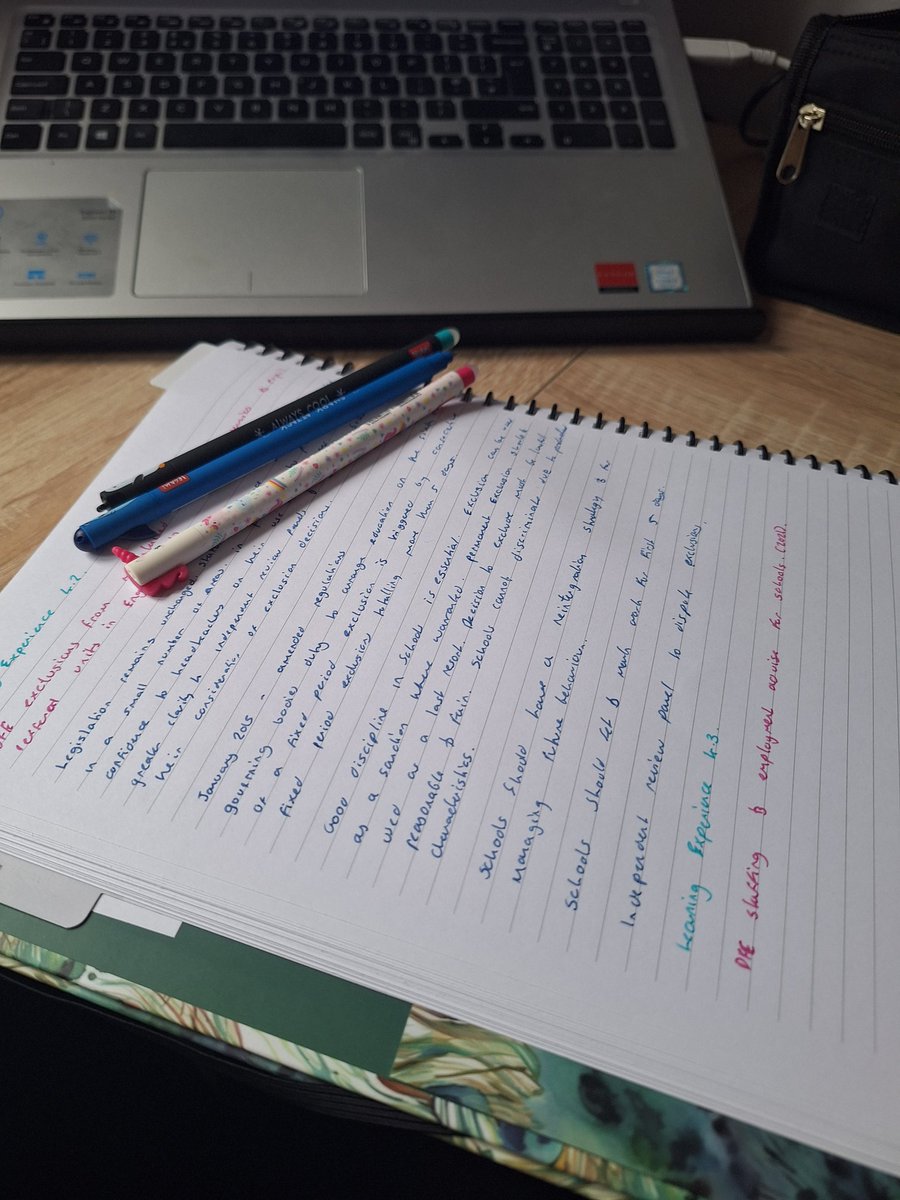 ALWAYS COOL
LEGAMI
LEGAMI
Experience 4.2
DFE exclusions from
referral units in
Legislation remains unchanged.
in a small number of areas. in
confidence to headteachers on their use
greater clarity to independent review
their consideration of exclusion decisions.
January 2015 - amended regulations
governing bodies duty to arrange education on the sixth
of a fixed period exclusion is triggered by consecutive
fixed period exclusion totalling more than 5 days.
Good discipline in schools is essential. Exclusion can be
as a sanction where warranted. Permanent Exclusion should
used as a last resort. Decision to exclude must be lawful
reasonable & fair. Schools cannot discriminate due to protected
characteristics.
Schools should have a reintegration strategy & for
managing future behaviour.
Schools should set & mark work for first 5 days.
Independent review panel to dispute exclusion.
Learning Experience 4.3.
DFE staffing & employment advise for schools. (2021).